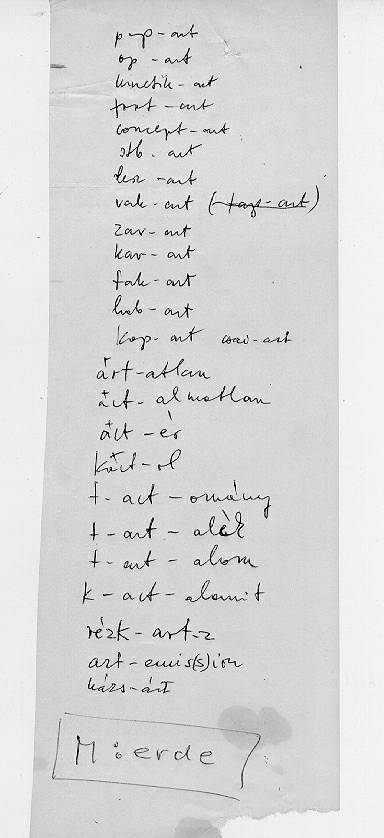 pop-art
op-art
kinetik-art
foot-art
concept-art
stb. art
lesz-art
vak-art
zav-art
kav-art
fak-art
hab-art
kop-art
árt-atlan
árt-almatlan
árt-ér
kárt-ol
t-art-omány
t-art-alék
t-art-alom
k-art-alomit
rézk-art-z
art-emis(s)ion
házs-árt
M:erde